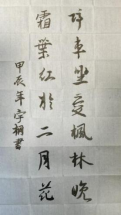 停車坐愛楓林晚
霜葉紅於二月花
甲辰年宇桐書